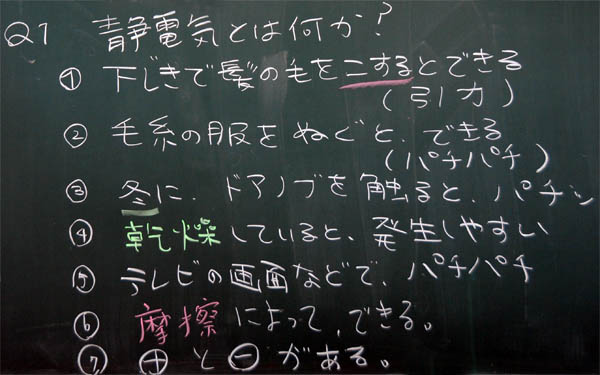 Q1 静電気とは何か?
① 下じきで髪の毛をこするとできる
(引力)
② 毛糸の服をぬぐと、できる
(パチパチ)
③ 冬に、ドアノブを触ると、パチッ
④ 乾燥していると、発生しやすい
⑤ テレビの画面などで、パチパチ
⑥ 摩擦によって、できる。
⑦ ⊕と⊖がある。